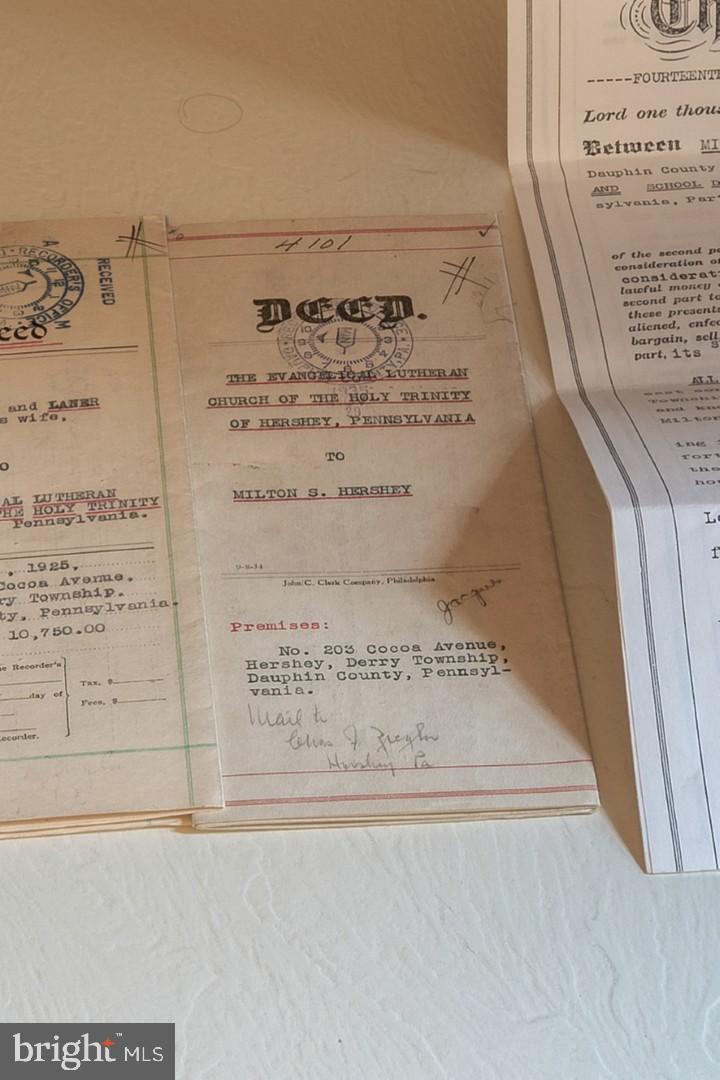 RECORDER'S OFFICE
A
M
RECEIVED
eed
and LANER
s wife,
O
AL LUTHERAN
THE HOLY TRINITY
Pennsylvania.
, 1925,
Cocoa Avenue.
ry Township.
ty, Pennsylvania.
10,750.00
e Recorder's
day of
Recorder.
Tax. $
Fees. $
4101
DEED.
THE EVANGELICAL LUTHERAN
CHURCH OF THE HOLY TRINITY
OF HERSHEY, PENNSYLVANIA
TO
MILTON S. HERSHEY
9-8-34
John C. Clark Company, Philadelphia
Jacques
Premises:
No. 203 Cocoa Avenue,
Hershey, Derry Township,
Dauphin County, Pennsyl-
vania.
Mail to
Chas F Ziegler
Hershey Pa
Th
-----FOURTEENT
Lord one thous
Between MI
Dauphin County
AND SCHOOL D
sylvania, Par
of the second pa
consideration of
considerat
lawful money o
second part to
these presents
aliened, enfeo
bargain, sell,
part, its s
ALL
east cor
Township
and kno
Milton
ing
for
the
ho
Lo
f
bright™ MLS